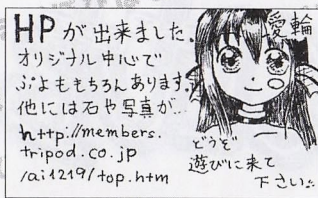 HPが出来ました。
オリジナル中心で
ぷよももちろんあります。
他には石や写真が…
http://members.
tripod.co.jp
/ai1219/top.htm
愛輪
どうぞ
遊びに来て
下さい。